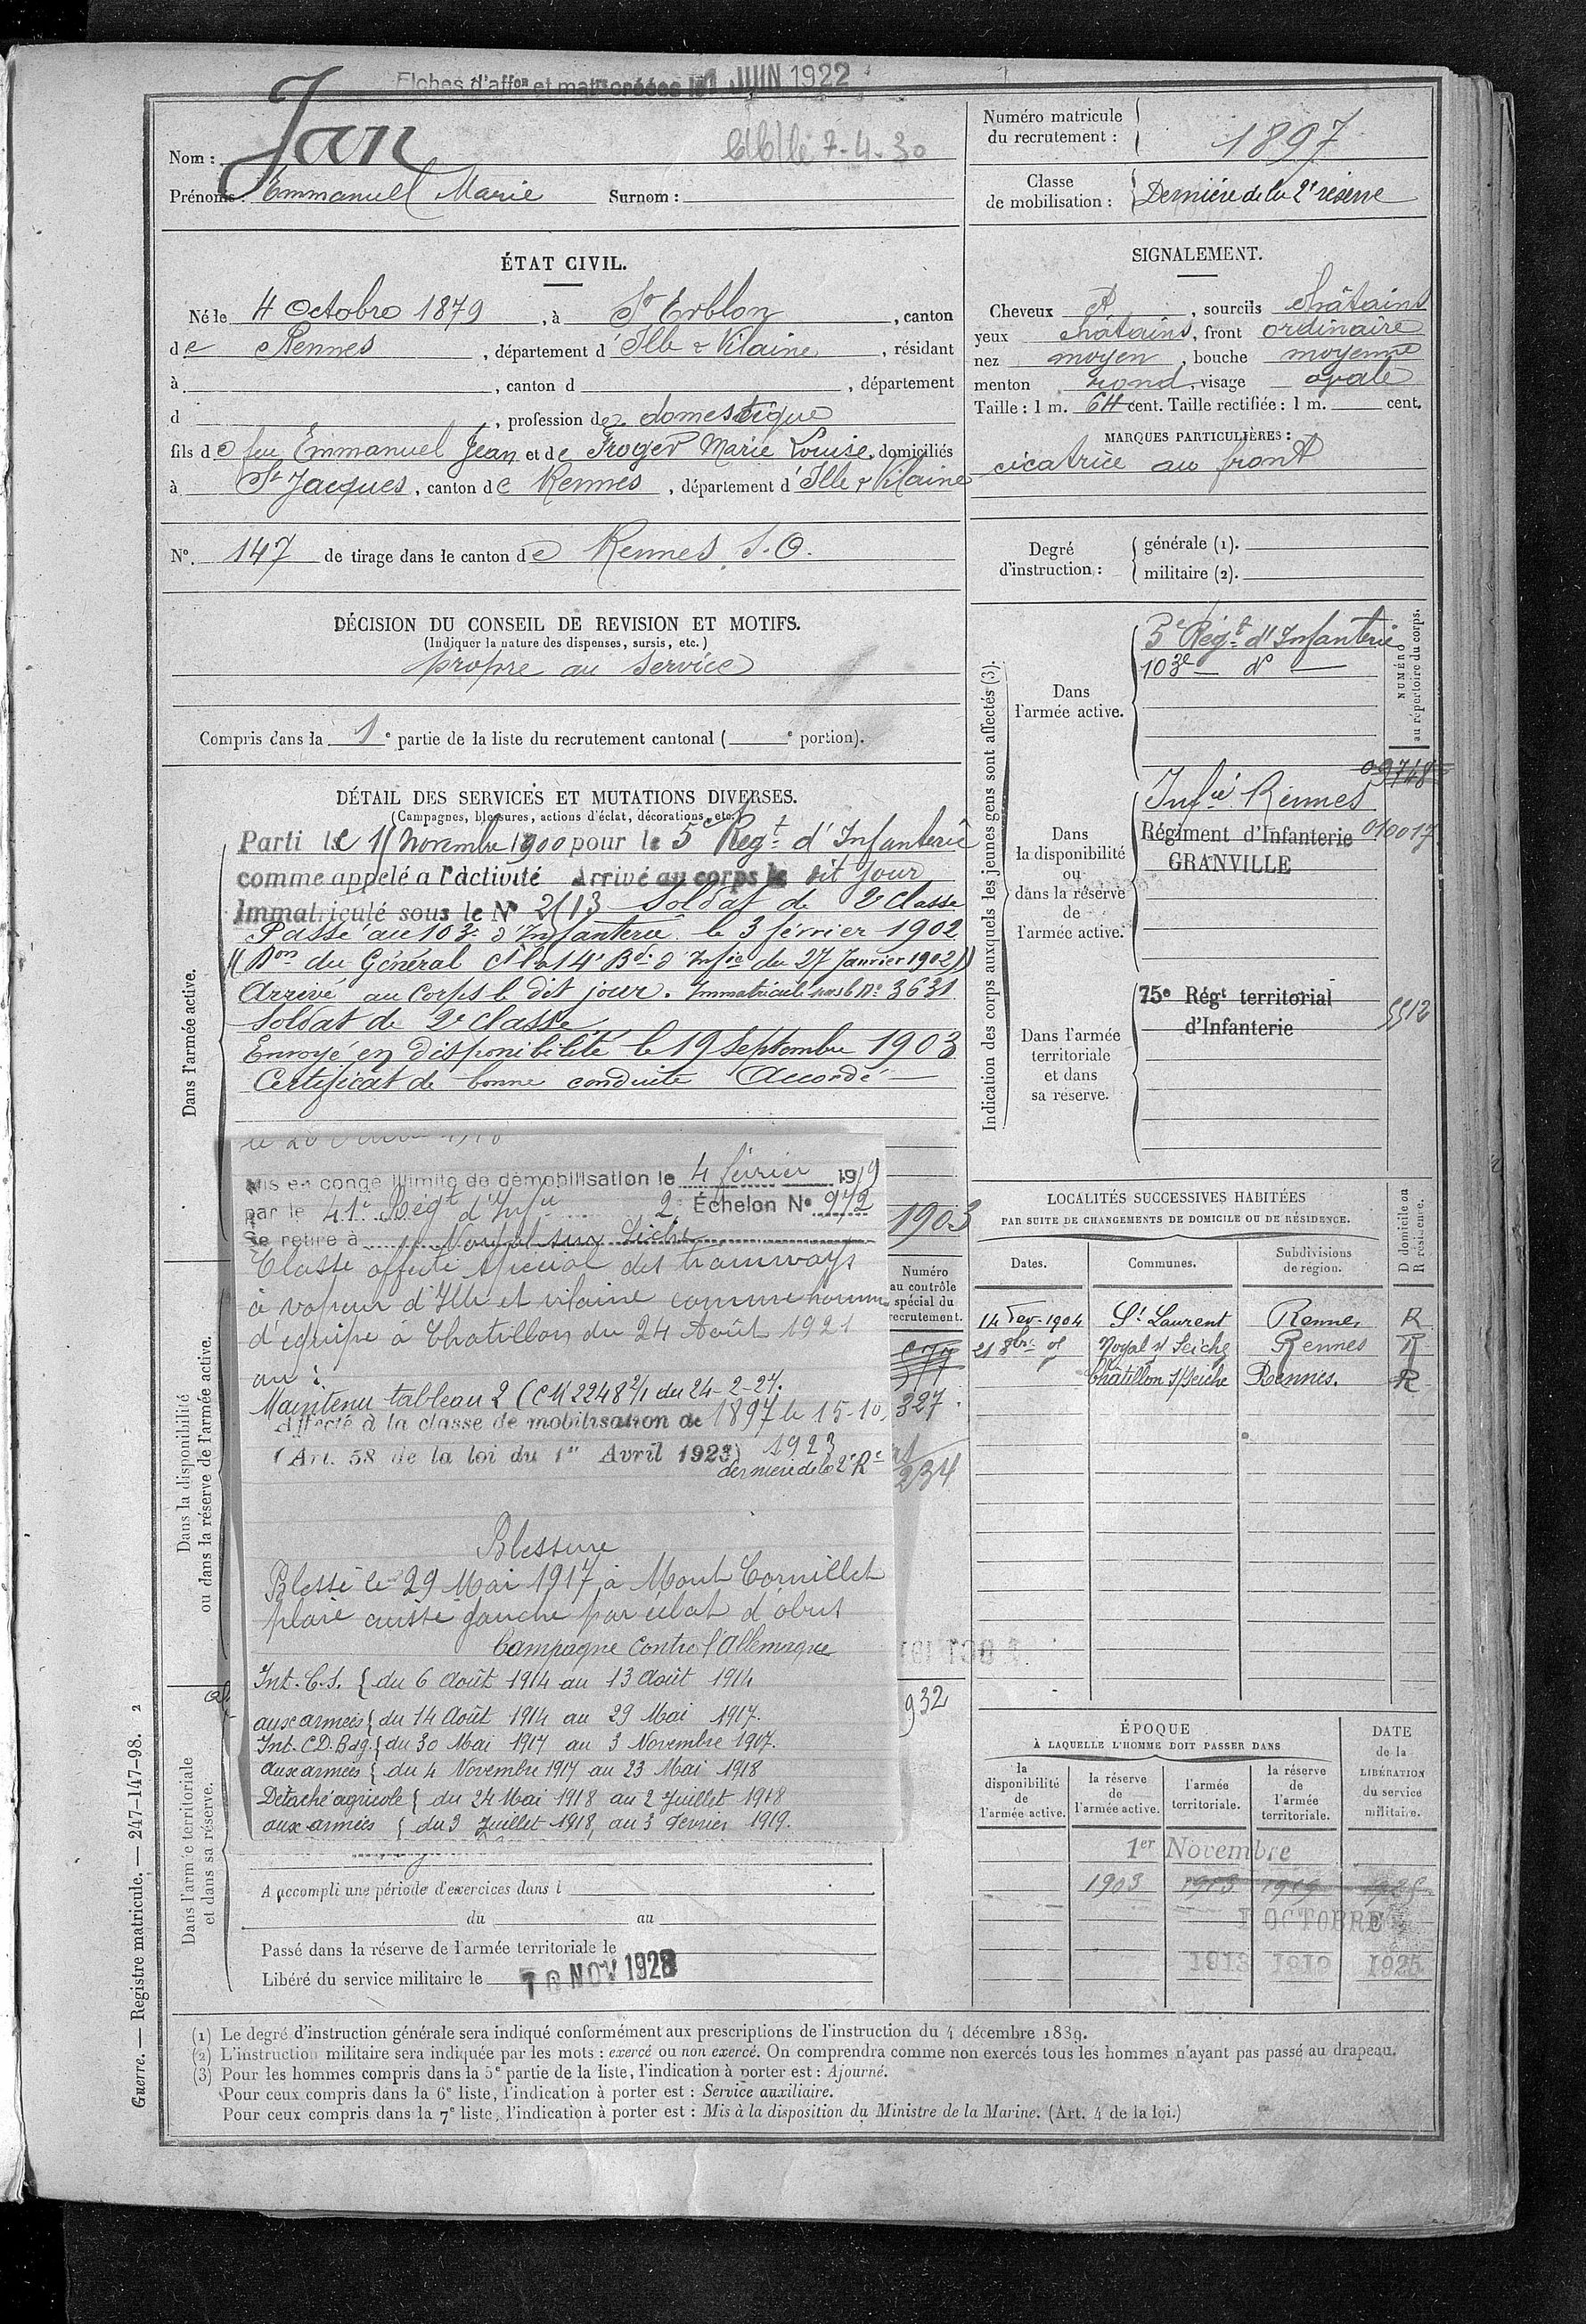 Fiches d'affon et matre créées le 1 JUIN 1922
Nom : Jan
7-4-30
Prénoms : Emmanuel Marie Surnom :
Numéro matricule du recrutement : 1897
Classe de mobilisation : Dernière de la 2e réserve
ÉTAT CIVIL.
Né le 4 Octobre 1879, à St Erblon, canton
de Rennes, département d'Ille & Vilaine, résidant
à , canton d , département
d , profession de domestique
fils de feu Emmanuel Jean et de Froger Marie Louise, domiciliés
à St Jacques, canton de Rennes, département d'Ille & Vilaine
No. 147 de tirage dans le canton de Rennes S.O.
DÉCISION DU CONSEIL DE REVISION ET MOTIFS.
(Indiquer la nature des dispenses, sursis, etc.)
propre au service
Compris dans la 1e partie de la liste du recrutement cantonal ( e portion).
SIGNALEMENT.
Cheveux , sourcils châtains
yeux châtains, front ordinaire
nez moyen, bouche moyenne
menton rond, visage ovale
Taille : 1 m. 64 cent. Taille rectifiée : 1 m. cent.
MARQUES PARTICULIÈRES :
cicatrice au front
Degré d'instruction :
générale (1).
militaire (2).
DÉTAIL DES SERVICES ET MUTATIONS DIVERSES.
(Campagnes, blessures, actions d'éclat, décorations, etc.)
Dans l'armée active.
Parti le 11 Novembre 1900 pour le 5e Regt d'Infanterie
comme appelé à l'activité Arrivé au corps le dit jour
Immatriculé sous le No 2113 Soldat de 2e Classe
Passé au 103e d'Infanterie le 3 février 1902
(Don du Général Ct la 14e Bde d'Infie du 27 Janvier 1902)
Arrivé au Corps le dit jour. Immatriculé sous le No 3631
Soldat de 2e Classe
Envoyé en disponibilité le 19 Septembre 1903
Certificat de bonne conduite Accordé
Mis en congé illimité de démobilisation le 4 février 1919
par le 41e Régt d'Infie 2e Échelon No 972
Se retire à Noyal sur Seiche
Classé affecté spécial des tramways
à vapeur d'Ille et vilaine comme homme
d'équipe à Chatillon du 24 Août 1921
au :
Maintenu tableau 2 (CM 2248 2/1 du 24-2-27.
Affecté à la classe de mobilisation de 1897 le 15-10
(Art. 58 de la loi du 1er Avril 1923) 1923
dernière de la 2e Re
Blessure
Blessé le 29 Mai 1917 à Mont Cornillet
plaie cuisse gauche par éclat d'obus
Campagne contre l'Allemagne
Int. C.S. { du 6 Août 1914 au 13 Août 1914
aux armées { du 14 Août 1914 au 29 Mai 1917.
Int. C.D. Bdg. { du 30 Mai 1917 au 3 Novembre 1917.
aux armées { du 4 Novembre 1917 au 23 Mai 1918
Détaché agricole { du 24 Mai 1918 au 2 Juillet 1918
aux armées { du 3 Juillet 1918, au 3 Février 1919.
1903
Numéro au contrôle spécial du recrutement.
327
234
932
Dans la disponibilité ou dans la réserve de l'armée active.
Dans l'armée territoriale et dans sa réserve.
A accompli une période d'exercices dans l
du au
Passé dans la réserve de l'armée territoriale le
Libéré du service militaire le 10 NOV 1928
Indication des corps auxquels les jeunes gens sont affectés (3).
NUMÉRO au répertoire du corps.
Dans l'armée active.
5e Régt d'Infanterie
103e do
Dans la disponibilité ou dans la réserve de l'armée active.
09748
Infie Rennes
Régiment d'Infanterie 010017
GRANVILLE
Dans l'armée territoriale et dans sa réserve.
75e Régt territorial
d'Infanterie
5512
LOCALITÉS SUCCESSIVES HABITÉES
PAR SUITE DE CHANGEMENTS DE DOMICILE OU DE RÉSIDENCE.
Dates. Communes. Subdivisions de région. D domicile ou R résidence.
14 Fév. 1904 St Laurent Rennes R
21 8bre Noyal s/ Seiche Rennes R
Châtillon s/Seiche Rennes. R
ÉPOQUE
À LAQUELLE L'HOMME DOIT PASSER DANS
la disponibilité de l'armée active.
la réserve de l'armée active.
l'armée territoriale.
la réserve de l'armée territoriale.
DATE de la LIBÉRATION du service militaire.
1er Novembre
1903 1913 1919 1925
1 OCTOBRE
1913 1919 1925
Guerre. — Registre matricule. — 247-147-98. 2
(1) Le degré d'instruction générale sera indiqué conformément aux prescriptions de l'instruction du 4 décembre 1889.
(2) L'instruction militaire sera indiquée par les mots : exercé ou non exercé. On comprendra comme non exercés tous les hommes n'ayant pas passé au drapeau.
(3) Pour les hommes compris dans la 5e partie de la liste, l'indication à porter est : Ajourné.
Pour ceux compris dans la 6e liste, l'indication à porter est : Service auxiliaire.
Pour ceux compris dans la 7e liste, l'indication à porter est : Mis à la disposition du Ministre de la Marine. (Art. 4 de la loi.)